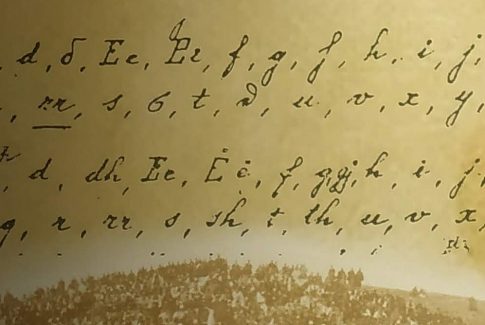 , d, δ, Ee, f, g, h, i, j,
, rr, s, б, t, u, v, x, y,
, d, dh, Ee, Ė ė, f, g, gj, h, i, j,
q, r, rr, s, sh, t, th, u, v, x,